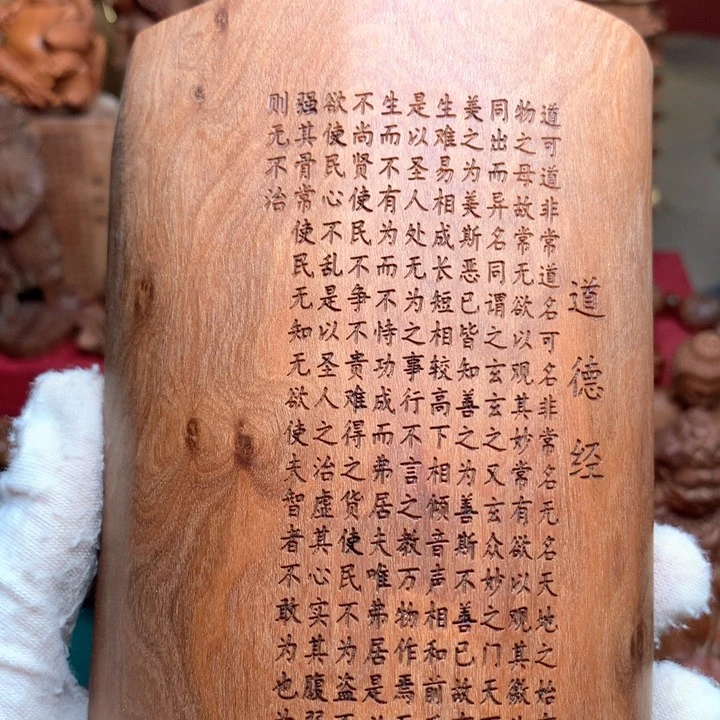 道德经
道可道非常道名可名非常名无名天地之始
物之母故常无欲以观其妙常有欲以观其徼
同出而异名同谓之玄玄之又玄众妙之门天
美之为美斯恶已皆知善之为善斯不善已故
生难易相成长短相较高下相倾音声相和前
是以圣人处无为之事行不言之教万物作焉
生而不有为而不恃功成而弗居夫唯弗居是
不尚贤使民不争不贵难得之货使民不为盗
欲使民心不乱是以圣人之治虚其心实其腹
强其骨常使民无知无欲使夫智者不敢为也
则无不治